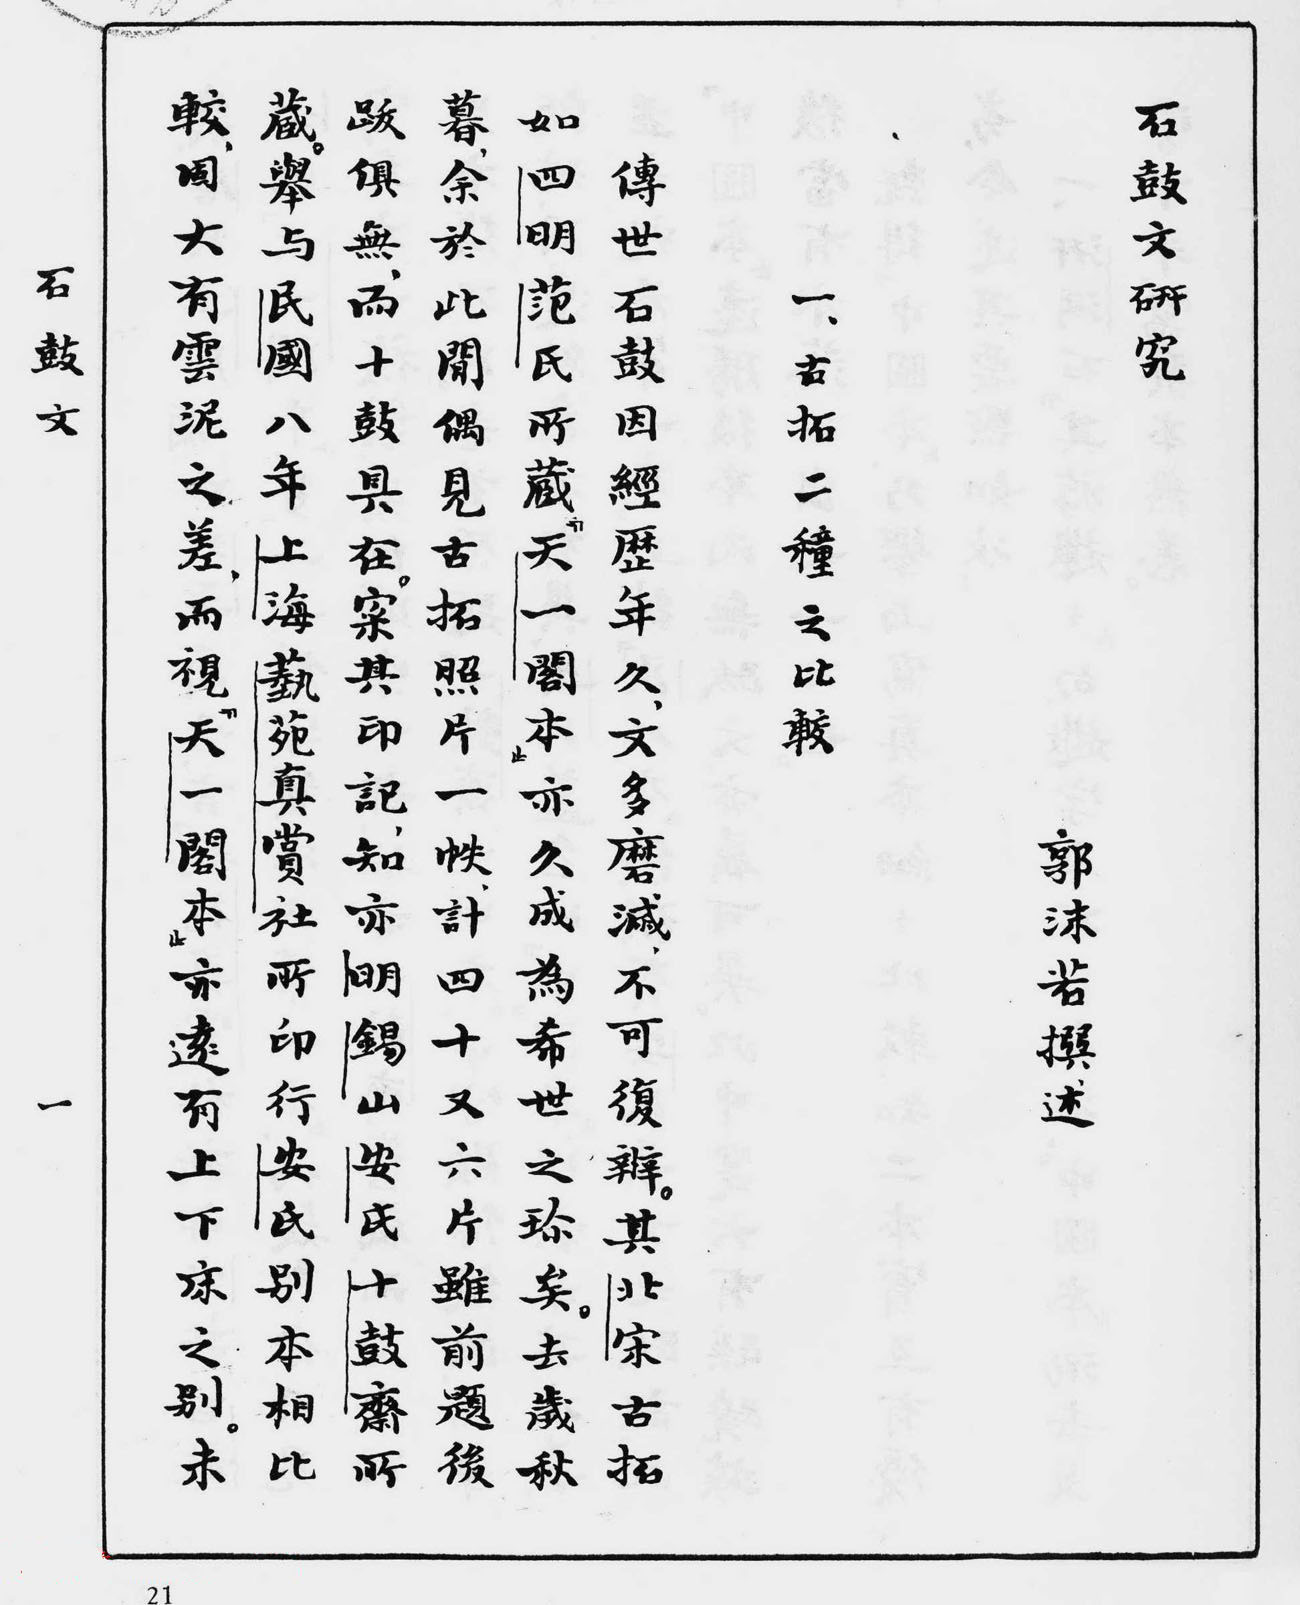 石鼓文研究
郭沫若撰述
一、古拓二種之比較
傳世石鼓因經歷年久、文多磨滅、不可復辨。其北宋古拓
如四明范氏所藏『天一閣本』亦久成為希世之珍矣。去歲秋
暮、余於此間偶見古拓照片一帙、計四十又六片雖前題後
跋俱無、而十鼓具在。案其印記、知亦明錫山安氏十鼓齋所
藏。舉与民國八年上海藝苑真賞社所印行安氏别本相比
較、固大有雲泥之差、而視『天一閣本』亦遠有上下床之别。未
石鼓文
一
21